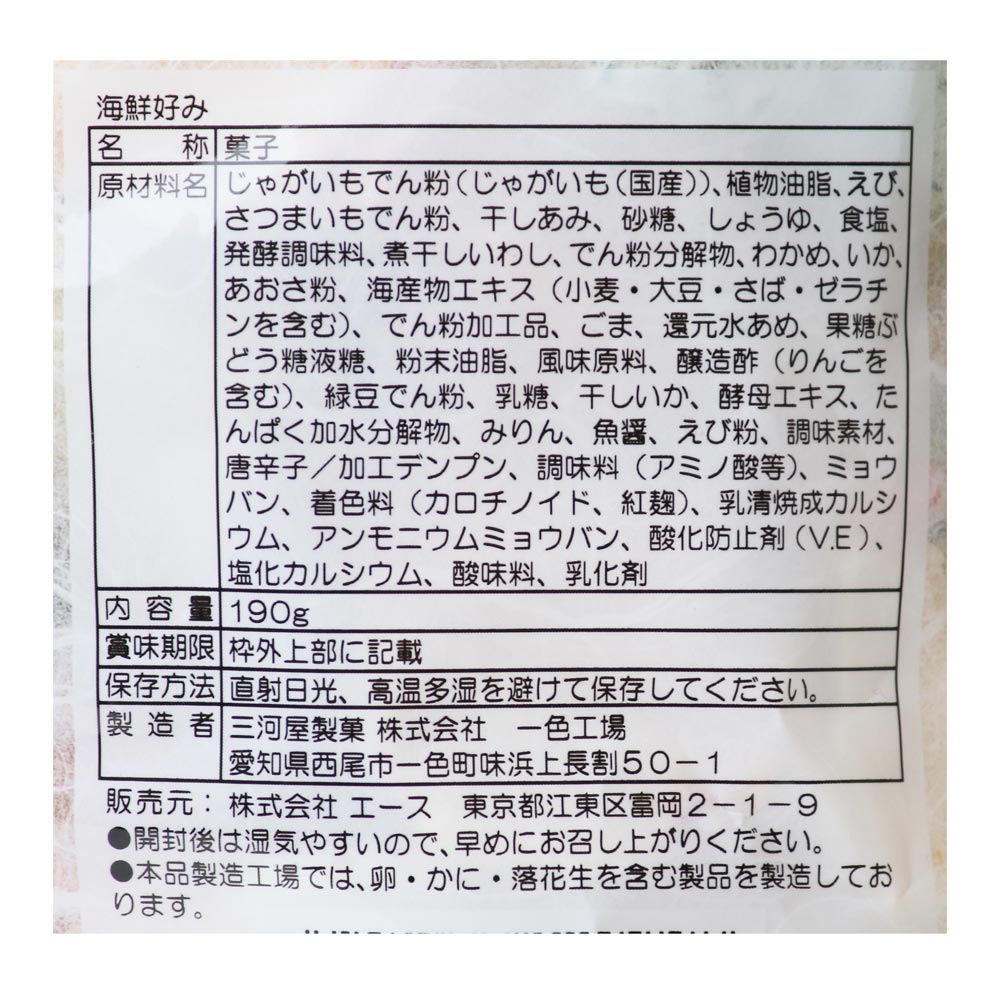 海鮮好み
名称 菓子
原材料名 じゃがいもでん粉(じゃがいも(国産))、植物油脂、えび、
さつまいもでん粉、干しあみ、砂糖、しょうゆ、食塩、
発酵調味料、煮干しいわし、でん粉分解物、わかめ、いか、
あおさ粉、海産物エキス(小麦・大豆・さば・ゼラチ
ンを含む)、でん粉加工品、ごま、還元水あめ、果糖ぶ
どう糖液糖、粉末油脂、風味原料、醸造酢(りんごを
含む)、緑豆でん粉、乳糖、干しいか、酵母エキス、た
んぱく加水分解物、みりん、魚醤、えび粉、調味素材、
唐辛子/加工デンプン、調味料(アミノ酸等)、ミョウ
バン、着色料(カロチノイド、紅麹)、乳清焼成カルシ
ウム、アンモニウムミョウバン、酸化防止剤(V.E)、
塩化カルシウム、酸味料、乳化剤
内容量 190g
賞味期限 枠外上部に記載
保存方法 直射日光、高温多湿を避けて保存してください。
製造者 三河屋製菓 株式会社 一色工場
愛知県西尾市一色町味浜上長割50-1
販売元:株式会社 エース 東京都江東区富岡2-1-9
●開封後は湿気やすいので、早めにお召し上がりください。
●本品製造工場では、卵・かに・落花生を含む製品を製造してお
ります。